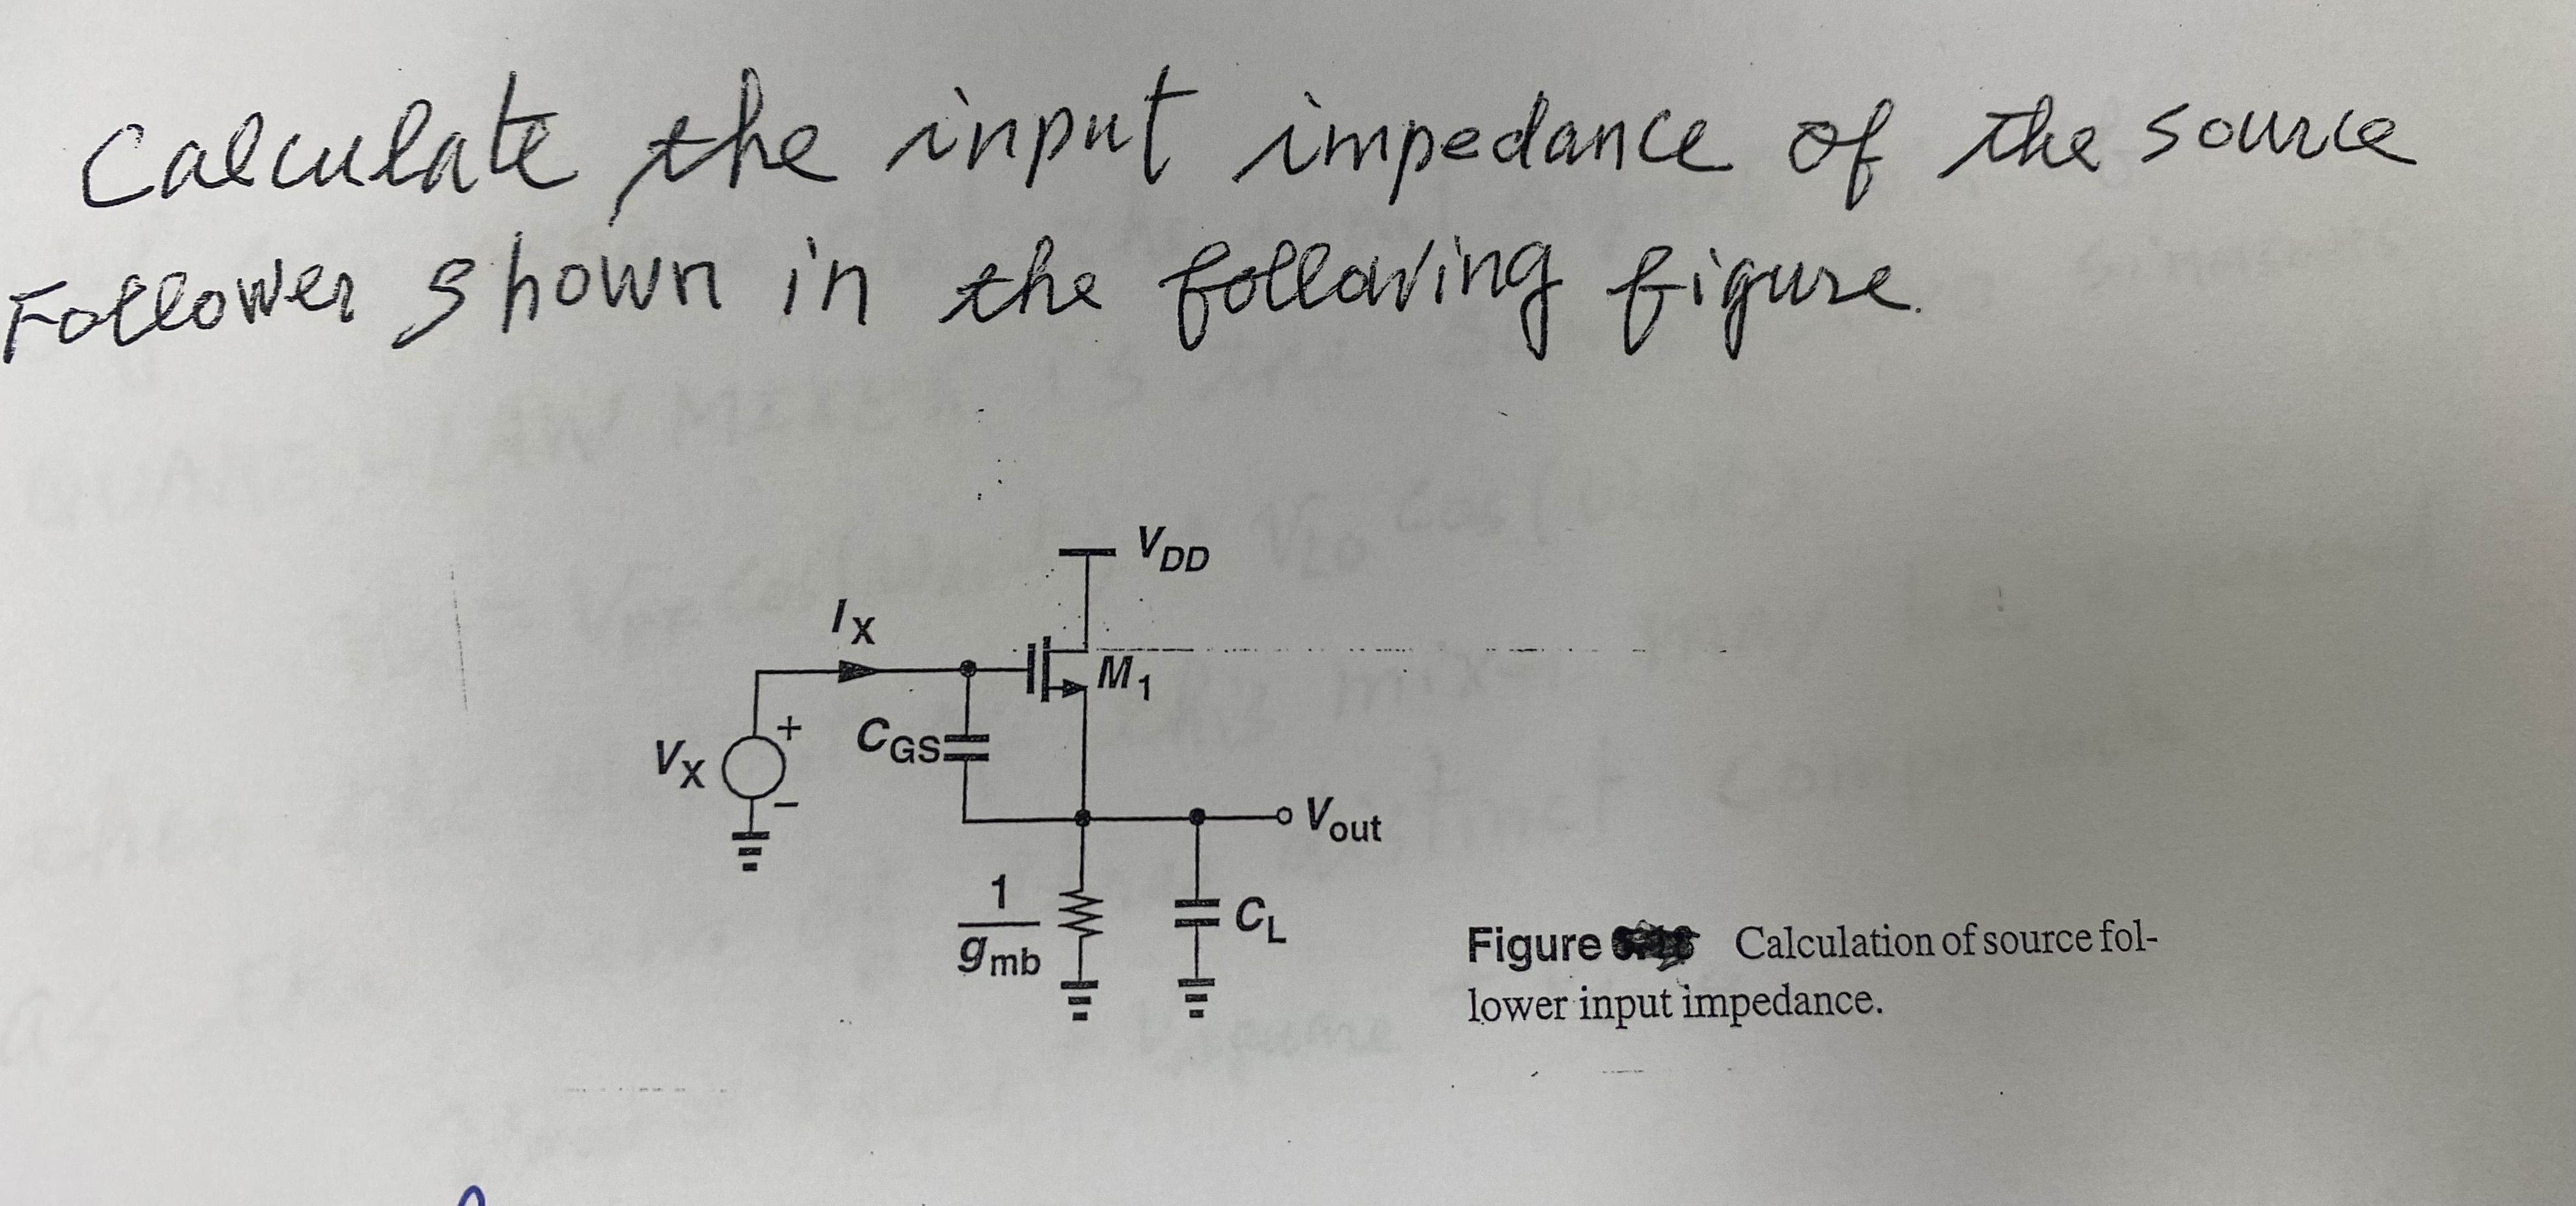 Calculate the input impedance of the source
Follower shown in the following figure.
VDD
IX
M1
CGS
VX
+
−
Vout
1
gmb
CL
Figure Calculation of source fol-
lower input impedance.